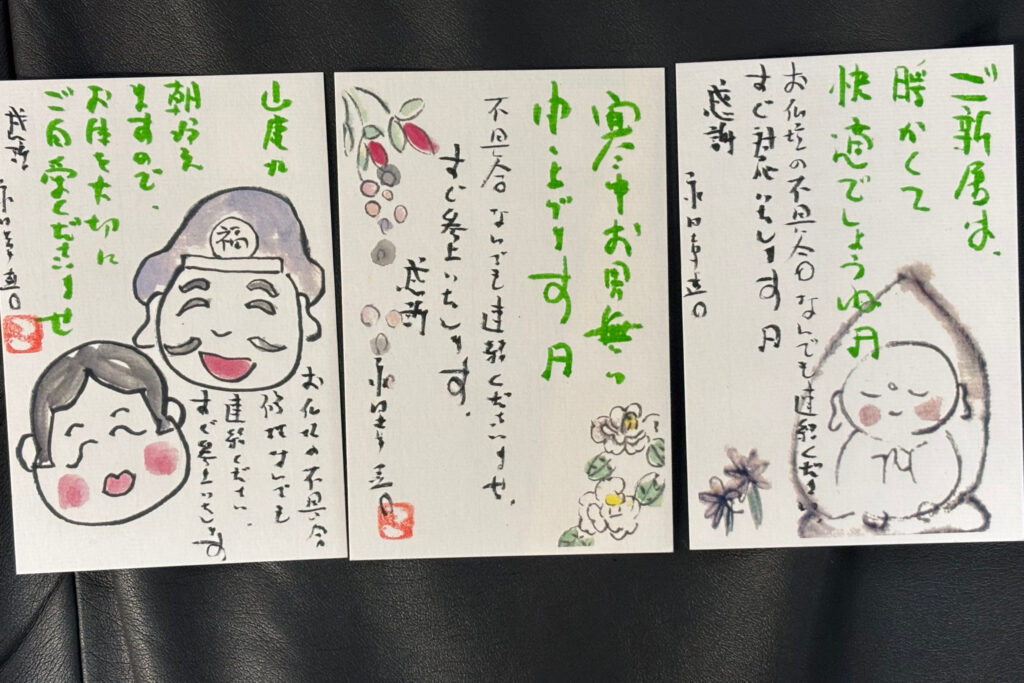 ご新居は、
暖かくて
快適でしょうね
お仏壇の不具合なんでも連絡ください。
すぐ対応いたします
感謝
寒中お見舞い
申し上げます
不具合なんでも連絡くださいませ。
すぐ参上いたします。
感謝
朝冷え
ますので、
お体を大切に
ご自愛くださいませ
感謝
福
お仏壇の不具合
修理なんでも
連絡ください
すぐ参上いたします